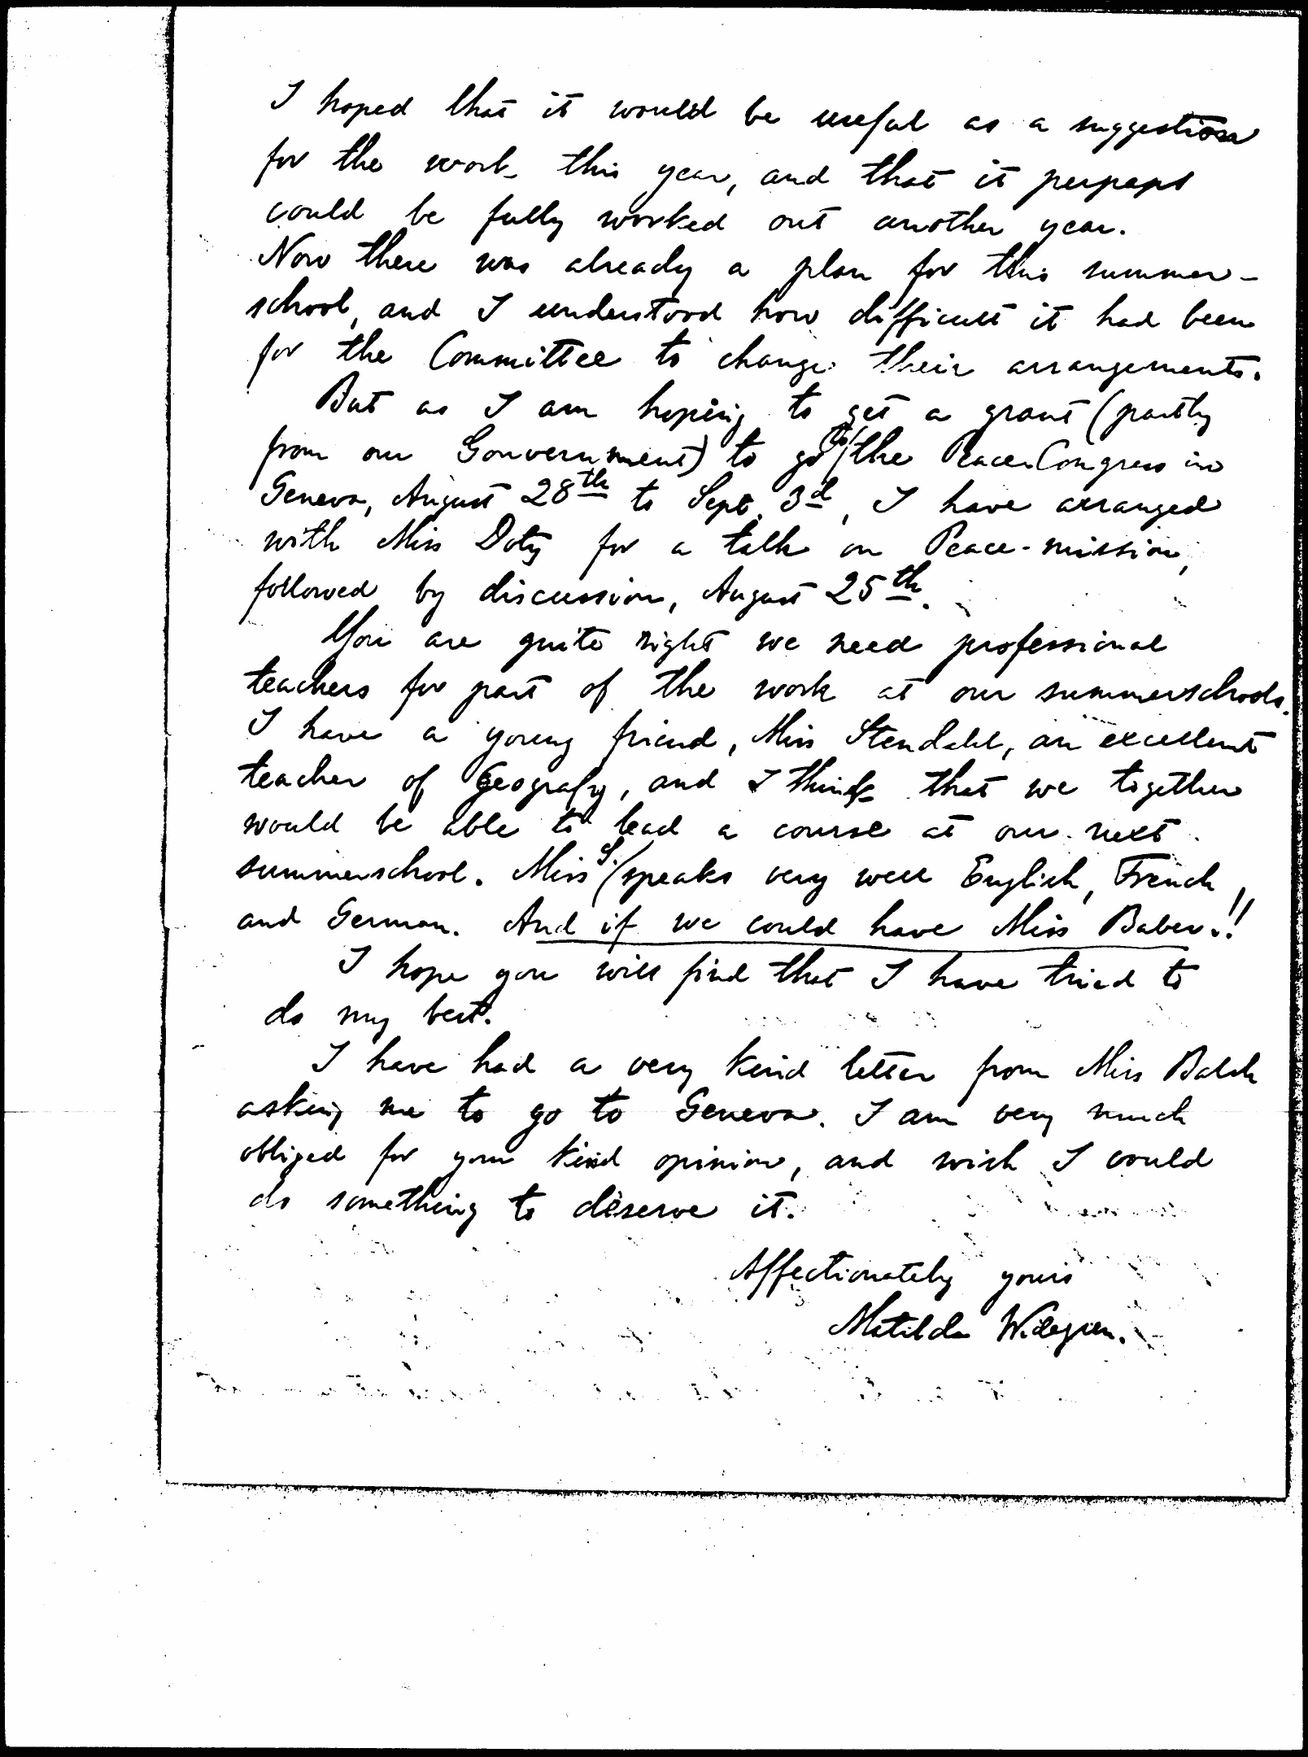 I hoped that it would be useful as a suggestion
for the work this year, and that it perpaps
could be fully worked out another year.
Now there was already a plan for this summer-
school, and I understood how difficult it had been
for the Committee to change their arrangements.
But as I am hoping to get a grant (partly
from our Gouvernment) to go to the Peace Congress in
Geneva, August 28th to Sept. 3d, I have arranged
with Miss Doty for a talk on Peace-mission,
followed by discussion, August 25th.
You are quite right we need professional
teachers for part of the work at our summerschools.
I have a young friend, Miss Stendahl, an excellent
teacher of Geografy, and I think that we together
would be able to lead a course at our next
summerschool. Miss S. speaks very well English, French,
and German. And if we could have Miss Baber!!
I hope you will find that I have tried to
do my best.
I have had a very kind letter from Miss Balch
asking me to go to Geneva. I am very much
obliged for your kind opinion, and wish I could
do something to deserve it.
Affectionately yours
Matilda Widegren.